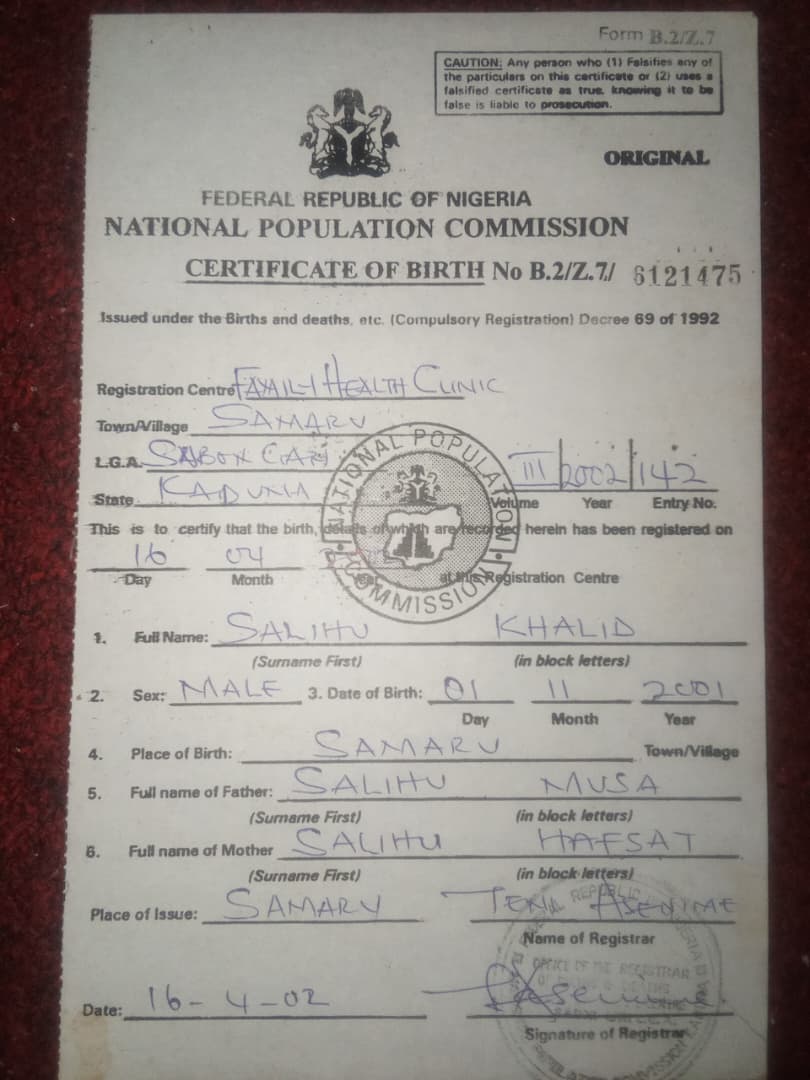 Form B.2/Z.7
CAUTION: Any person who (1) Falsifies any of
the particulars on this certificate or (2) uses a
falsified certificate as true, knowing it to be
false is liable to prosecution.
ORIGINAL
FEDERAL REPUBLIC OF NIGERIA
NATIONAL POPULATION COMMISSION
CERTIFICATE OF BIRTH No B.2/Z.7/ 6121475
Issued under the Births and deaths, etc. (Compulsory Registration) Decree 69 of 1992
Registration Centre HEALTH CLINIC
Town/Village SAMARU
L.G.A. SABON GARI
State KADUNA
III 2002 142
Volume Year Entry No.
NATIONAL POPULATION COMMISSION
This is to certify that the birth, details of which are recorded herein has been registered on
16 04
Day Month Year at this Registration Centre
1. Full Name: SALIHU KHALID
(Surname First) (in block letters)
2. Sex: MALE 3. Date of Birth: 01 11 2001
Day Month Year
4. Place of Birth: SAMARU Town/Village
5. Full name of Father: SALIHU MUSA
(Surname First) (in block letters)
6. Full name of Mother SALIHU HAFSAT
(Surname First) (in block letters)
Place of Issue: SAMARU ASENIME
Name of Registrar
Date: 16-4-02
Signature of Registrar
OFFICE OF THE REGISTRAR